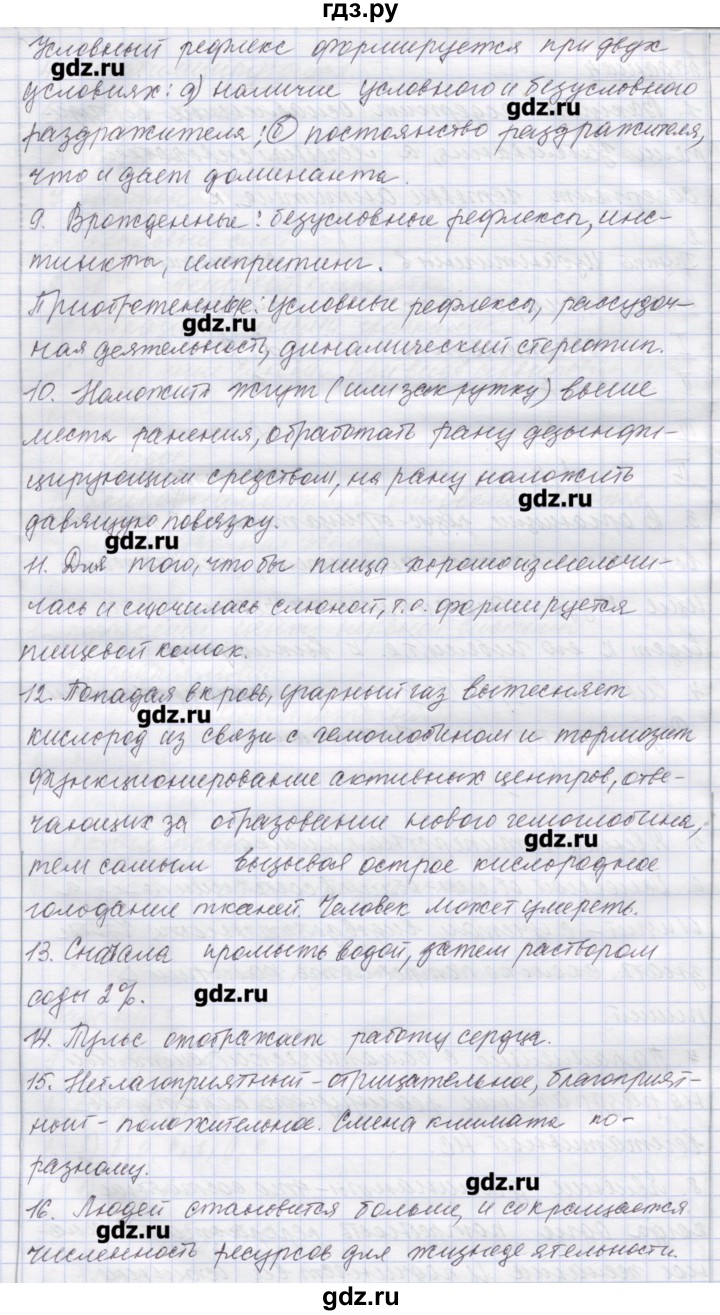 гдз.ру
Условный рефлекс формируется при двух
gdz.ru
условиях: а) наличие условного и безусловного
gdz.ru
раздражителя; б) постоянство раздражителя,
что и дает доминанта.
9. Врожденные: безусловные рефлексы, инс-
тинкты, импритинг.
Приобретенные: условные рефлексы, рассудоч-
gdz.ru
ная деятельность, динамический стереотип.
10. Наложить жгут (или закрутку) выше
места ранения, обработать рану дезинфи-
цирующим средством, на рану наложить
gdz.ru
давящую повязку.
gdz.ru
11. Для того, чтобы пища хорошо измельчи-
лась и смочилась слюной, т.о. формируется
пищевой комок.
12. Попадая в кровь, угарный газ вытесняет
gdz.ru
кислород из связи с гемоглобином и тормозит
функционирование активных центров, отве-
чающих за образование нового гемоглобина,
gdz.ru
тем самым вызывая острое кислородное
голодание тканей. Человек может умереть.
13. Сначала промыть водой, затем раствором
соды 2%.
gdz.ru
14. Пульс отображает работу сердца.
15. Неблагоприятный - отрицательное, благоприят-
ный - положительное. Смена климата по-
разному.
gdz.ru
16. Людей становится больше, и сокращается
gdz.ru
численность ресурсов для жизнедеятельности.
gdz.ru